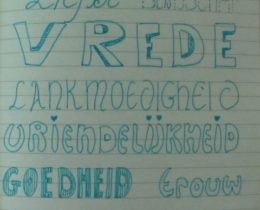 VREDE
LANKMOEDIGHEID
VRIENDELIJKHEID
GOEDHEID trouw